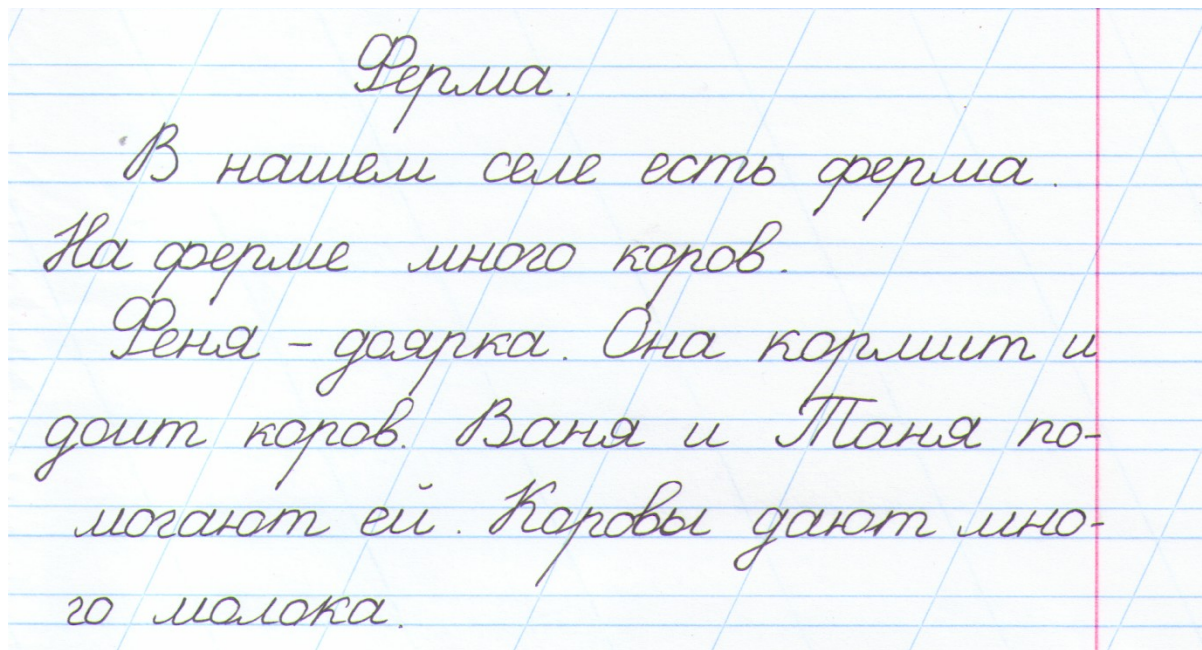 Ферма.
В нашем селе есть ферма.
На ферме много коров.
Феня - доярка. Она кормит и
доит коров. Ваня и Таня по-
могают ей. Коровы дают мно-
го молока.